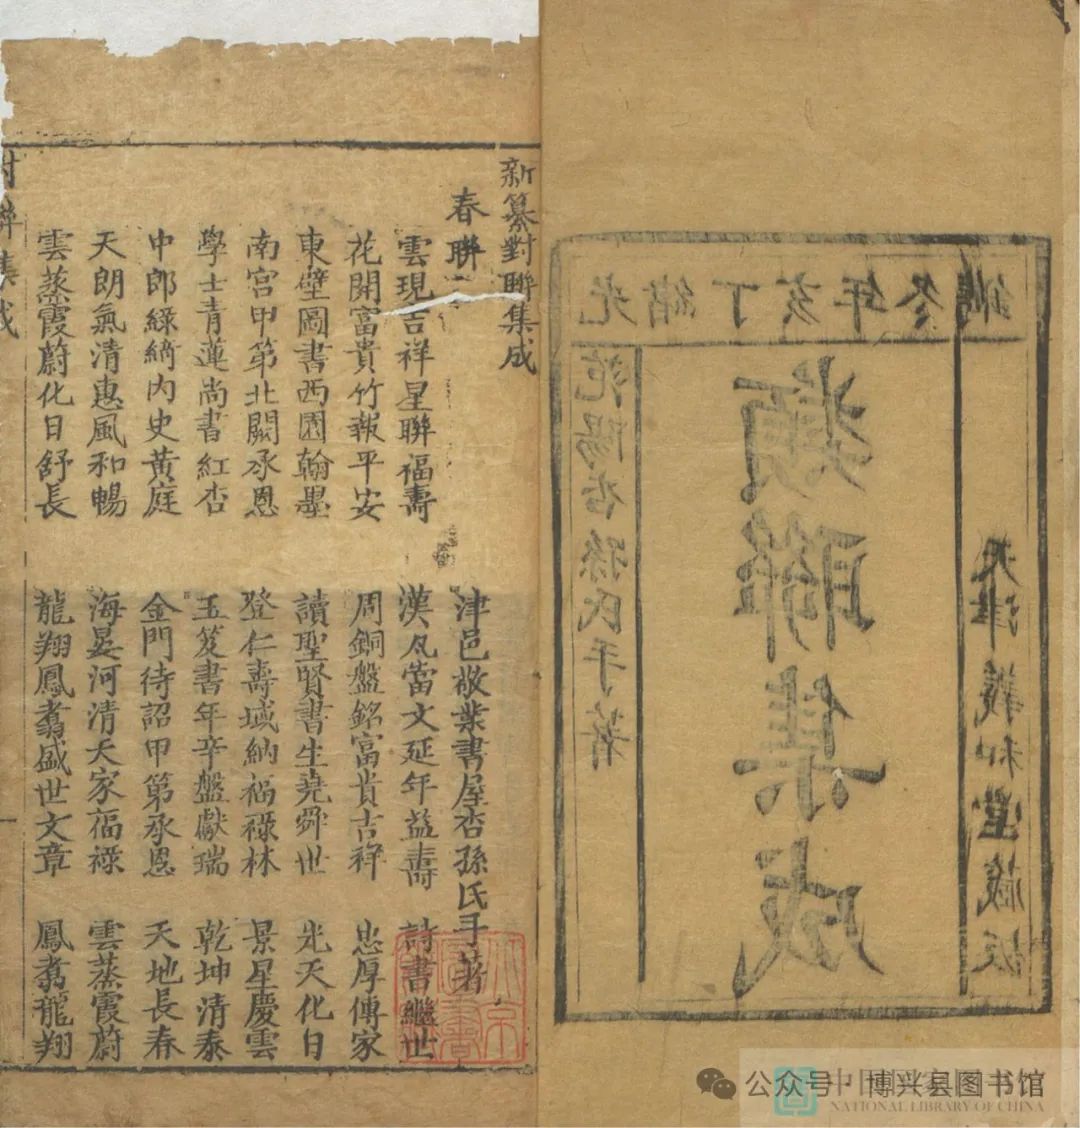 光緒丁亥年冬鐫
天津義和堂藏板
類聯集成
范陽杏孫氏手著
新纂對聯集成
春聯 津邑敬業書屋杏孫氏手著
雲現吉祥星聯福壽 漢瓦當文延年益壽 詩書繼世
花開富貴竹報平安 周銅盤銘富貴吉祥 忠厚傳家
東壁圖書西園翰墨 讀聖賢書生堯舜世 光天化日
南宮甲第北闕承恩 登仁壽域納福祿林 景星慶雲
學士青蓮尚書紅杏 玉笈書年辛盤獻瑞 乾坤清泰
中郎綠綺內史黃庭 金門待詔甲第承恩 天地長春
天朗氣清惠風和暢 海晏河清天家福祿 雲蒸霞蔚
雲蒸霞蔚化日舒長 龍翔鳳翥盛世文章 鳳翥龍翔
對聯集成
公众号·博兴县图书馆
NATIONAL LIBRARY OF CHINA